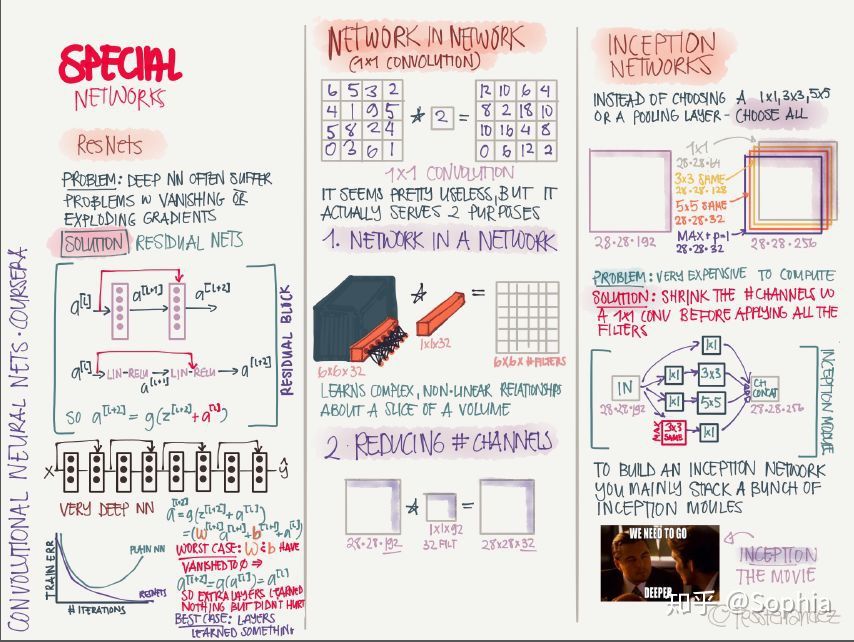 CONVOLUTIONAL NEURAL NETS · COURSERA
SPECIAL
NETWORKS
ResNets
PROBLEM: DEEP NN OFTEN SUFFER
PROBLEMS W VANISHING OR
EXPLODING GRADIENTS
SOLUTION RESIDUAL NETS
a[l] a[l+1] a[l+2]
a[l] LIN-RELU LIN-RELU a[l+2]
a[l+1]
so a[l+2] = g(z[l+2] + a[l])
RESIDUAL BLOCK
X ŷ
VERY DEEP NN
TRAIN ERR
PLAIN NN
RESNETS
# ITERATIONS
a[l+2] = g(z[l+2] + a[l])
= (w[l+2] a[l+1] + b[l+2] + a[l])
WORST CASE: W & b HAVE
VANISHED TO 0 ⇒
a[l+2] = g(a[l]) = a[l]
SO EXTRA LAYERS LEARNED
NOTHING BUT DIDNT HURT
BEST CASE: LAYERS
LEARNED SOMETHING
NETWORK IN NETWORK
(1x1 CONVOLUTION)
6 5 3 2
4 1 9 5
5 8 2 4
0 3 6 1
* 2 =
12 10 6 4
8 2 18 10
10 16 4 8
0 6 12 2
1x1 CONVOLUTION
IT SEEMS PRETTY USELESS, BUT IT
ACTUALLY SERVES 2 PURPOSES
1. NETWORK IN A NETWORK
* =
6x6x32
1x1x32
6x6x #FILTERS
LEARNS COMPLEX, NON-LINEAR RELATIONSHIPS
ABOUT A SLICE OF A VOLUME
2. REDUCING # CHANNELS
* =
28·28·192
1x1x192
32 FILT
28x28x32
INCEPTION
NETWORKS
INSTEAD OF CHOOSING A 1x1, 3x3, 5x5
OR A POOLING LAYER - CHOOSE ALL
28·28·192
1x1
28·28·64
3x3 SAME
28·28·128
5x5 SAME
28·28·32
MAX + p=1
28·28·32
28·28·256
PROBLEM: VERY EXPENSIVE TO COMPUTE
SOLUTION: SHRINK THE # CHANNELS W
A 1x1 CONV BEFORE APPLYING ALL THE
FILTERS
IN
28·28·192
1x1
1x1 3x3
1x1 5x5
MAX 3x3 SAME 1x1
CH CONCAT
28·28·256
INCEPTION MODULE
TO BUILD AN INCEPTION NETWORK
YOU MAINLY STACK A BUNCH OF
INCEPTION MOULES
WE NEED TO GO
DEEPER
INCEPTION
THE MOVIE
知乎 @Sophia